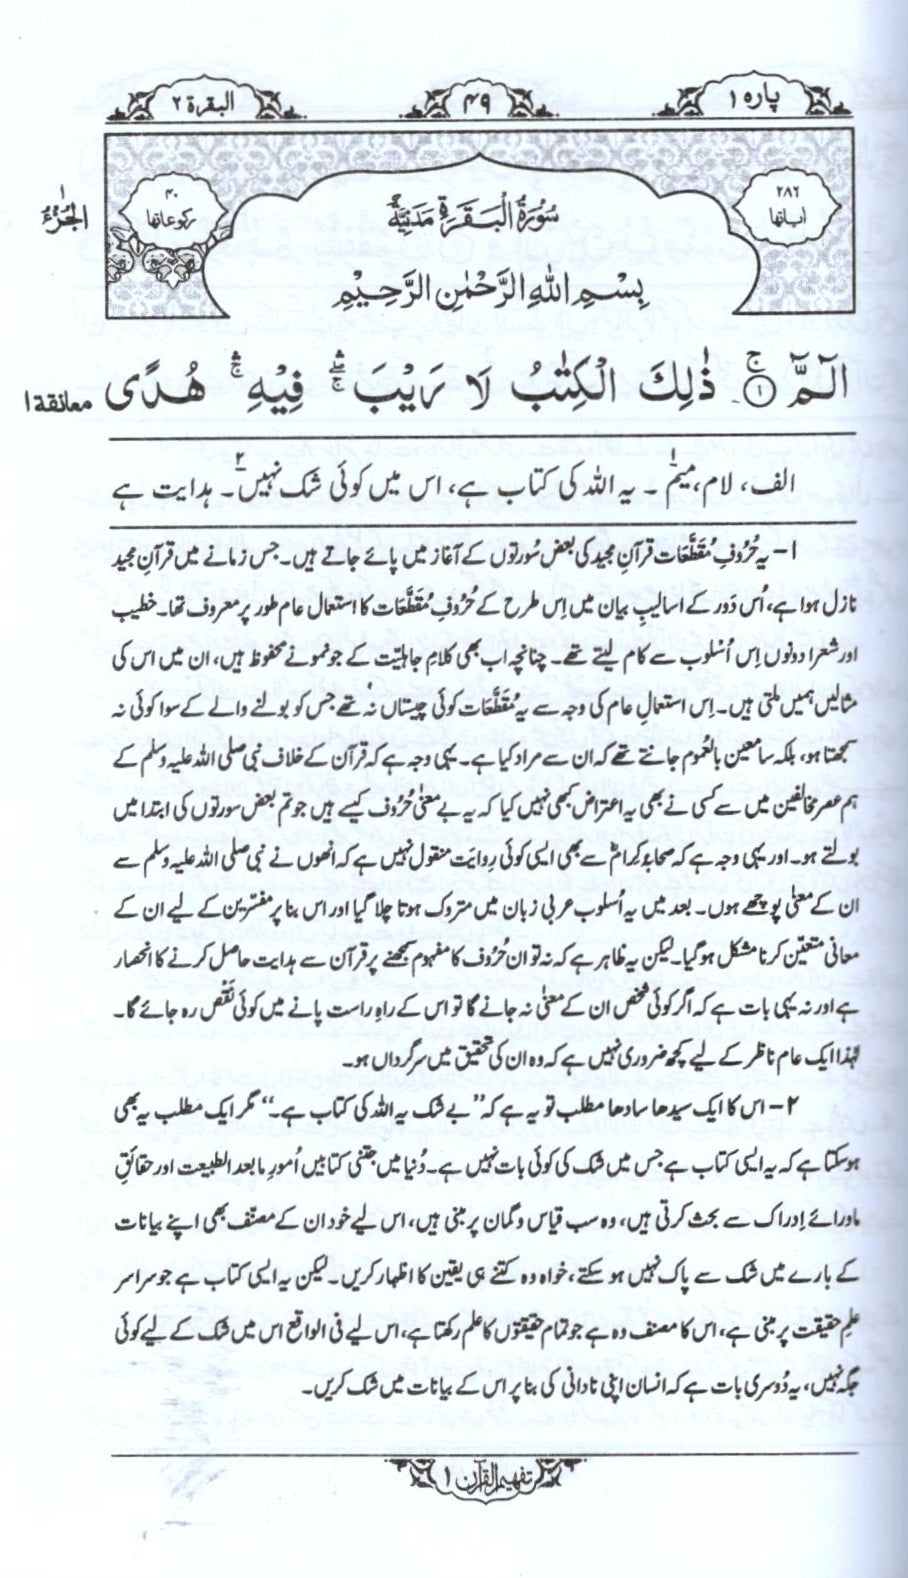 پارہ ۱
۴۹
البقرۃ ۲
۲۸۶
اٰیاتھا
سُوْرَۃُ الْبَقَرَۃِ مَدَنِیَّۃٌ
۴۰
رکوعاتھا
الجزء ۱
بِسْمِ اللّٰهِ الرَّحْمٰنِ الرَّحِیْمِ
الٓمّٓ ۚ﴿۱﴾ ذٰلِكَ الْكِتٰبُ لَا رَیْبَ ۛۚ فِیْهِ ۛۚ هُدًی
معانقۃ ۱
الف، لام، میم۱۔ یہ اللہ کی کتاب ہے، اس میں کوئی شک نہیں۲۔ ہدایت ہے
۱- یہ حُرُوفِ مُقَطَّعَات قرآنِ مجید کی بعض سُورتوں کے آغاز میں پائے جاتے ہیں۔ جس زمانے میں قرآنِ مجید
نازل ہوا ہے، اُس دَور کے اسالیبِ بیان میں اِس طرح کے حُرُوفِ مُقَطَّعَات کا استعمال عام طور پر معروف تھا۔ خطیب
اور شعرا دونوں اِس اُسْلوب سے کام لیتے تھے۔ چنانچہ اب بھی کلامِ جاہلیّت کے جو نمونے محفوظ ہیں، ان میں اس کی
مثالیں ہمیں ملتی ہیں۔ اِس استعمالِ عام کی وجہ سے یہ مُقَطَّعَات کوئی چیستاں نہ تھے جس کو بولنے والے کے سوا کوئی نہ
سمجھتا ہو، بلکہ سامعین بالعُموم جانتے تھے کہ ان سے مراد کیا ہے۔ یہی وجہ ہے کہ قرآن کے خلاف نبی صلی اللہ علیہ وسلم کے
ہم عصر مخالفین میں سے کسی نے بھی یہ اعتراض کبھی نہیں کیا کہ یہ بے معنٰی حُرُوف کیسے ہیں جو تم بعض سورتوں کی ابتدا میں
بولتے ہو۔ اور یہی وجہ ہے کہ صحابۂ کرامؓ سے بھی ایسی کوئی روایت منقول نہیں ہے کہ انھوں نے نبی صلی اللہ علیہ وسلم سے
ان کے معنٰی پوچھے ہوں۔ بعد میں یہ اُسلوب عربی زبان میں متروک ہوتا چلا گیا اور اس بنا پر مفسّرین کے لیے ان کے
معانی متعیّن کرنا مشکل ہوگیا۔ لیکن یہ ظاہر ہے کہ نہ تو ان حُرُوف کا مفہوم سمجھنے پر قرآن سے ہدایت حاصل کرنے کا انحصار
ہے اور نہ یہی بات ہے کہ اگر کوئی شخص ان کے معنٰی نہ جانے گا تو اس کے راہِ راست پانے میں کوئی نَقْص رہ جائے گا۔
لہٰذا ایک عام ناظر کے لیے کچھ ضروری نہیں ہے کہ وہ ان کی تحقیق میں سرگرداں ہو۔
۲- اس کا ایک سیدھا سادھا مطلب تو یہ ہے کہ ”بے شک یہ اللہ کی کتاب ہے۔“ مگر ایک مطلب یہ بھی
ہوسکتا ہے کہ یہ ایسی کتاب ہے جس میں شک کی کوئی بات نہیں ہے۔ دُنیا میں جتنی کتابیں اُمورِ مابعد الطبیعت اور حقائقِ
ماورائے اِدراک سے بحث کرتی ہیں، وہ سب قیاس و گمان پر مبنی ہیں، اس لیے خود ان کے مصنّف بھی اپنے بیانات
کے بارے میں شک سے پاک نہیں ہوسکتے، خواہ وہ کتنے ہی یقین کا اظہار کریں۔ لیکن یہ ایسی کتاب ہے جو سراسر
علمِ حقیقت پر مبنی ہے، اس کا مصنف وہ ہے جو تمام حقیقتوں کا علم رکھتا ہے، اس لیے فی الواقع اس میں شک کے لیے کوئی
جگہ نہیں، یہ دُوسری بات ہے کہ انسان اپنی نادانی کی بنا پر اس کے بیانات میں شک کریں۔
تفہیم القرآن ۱